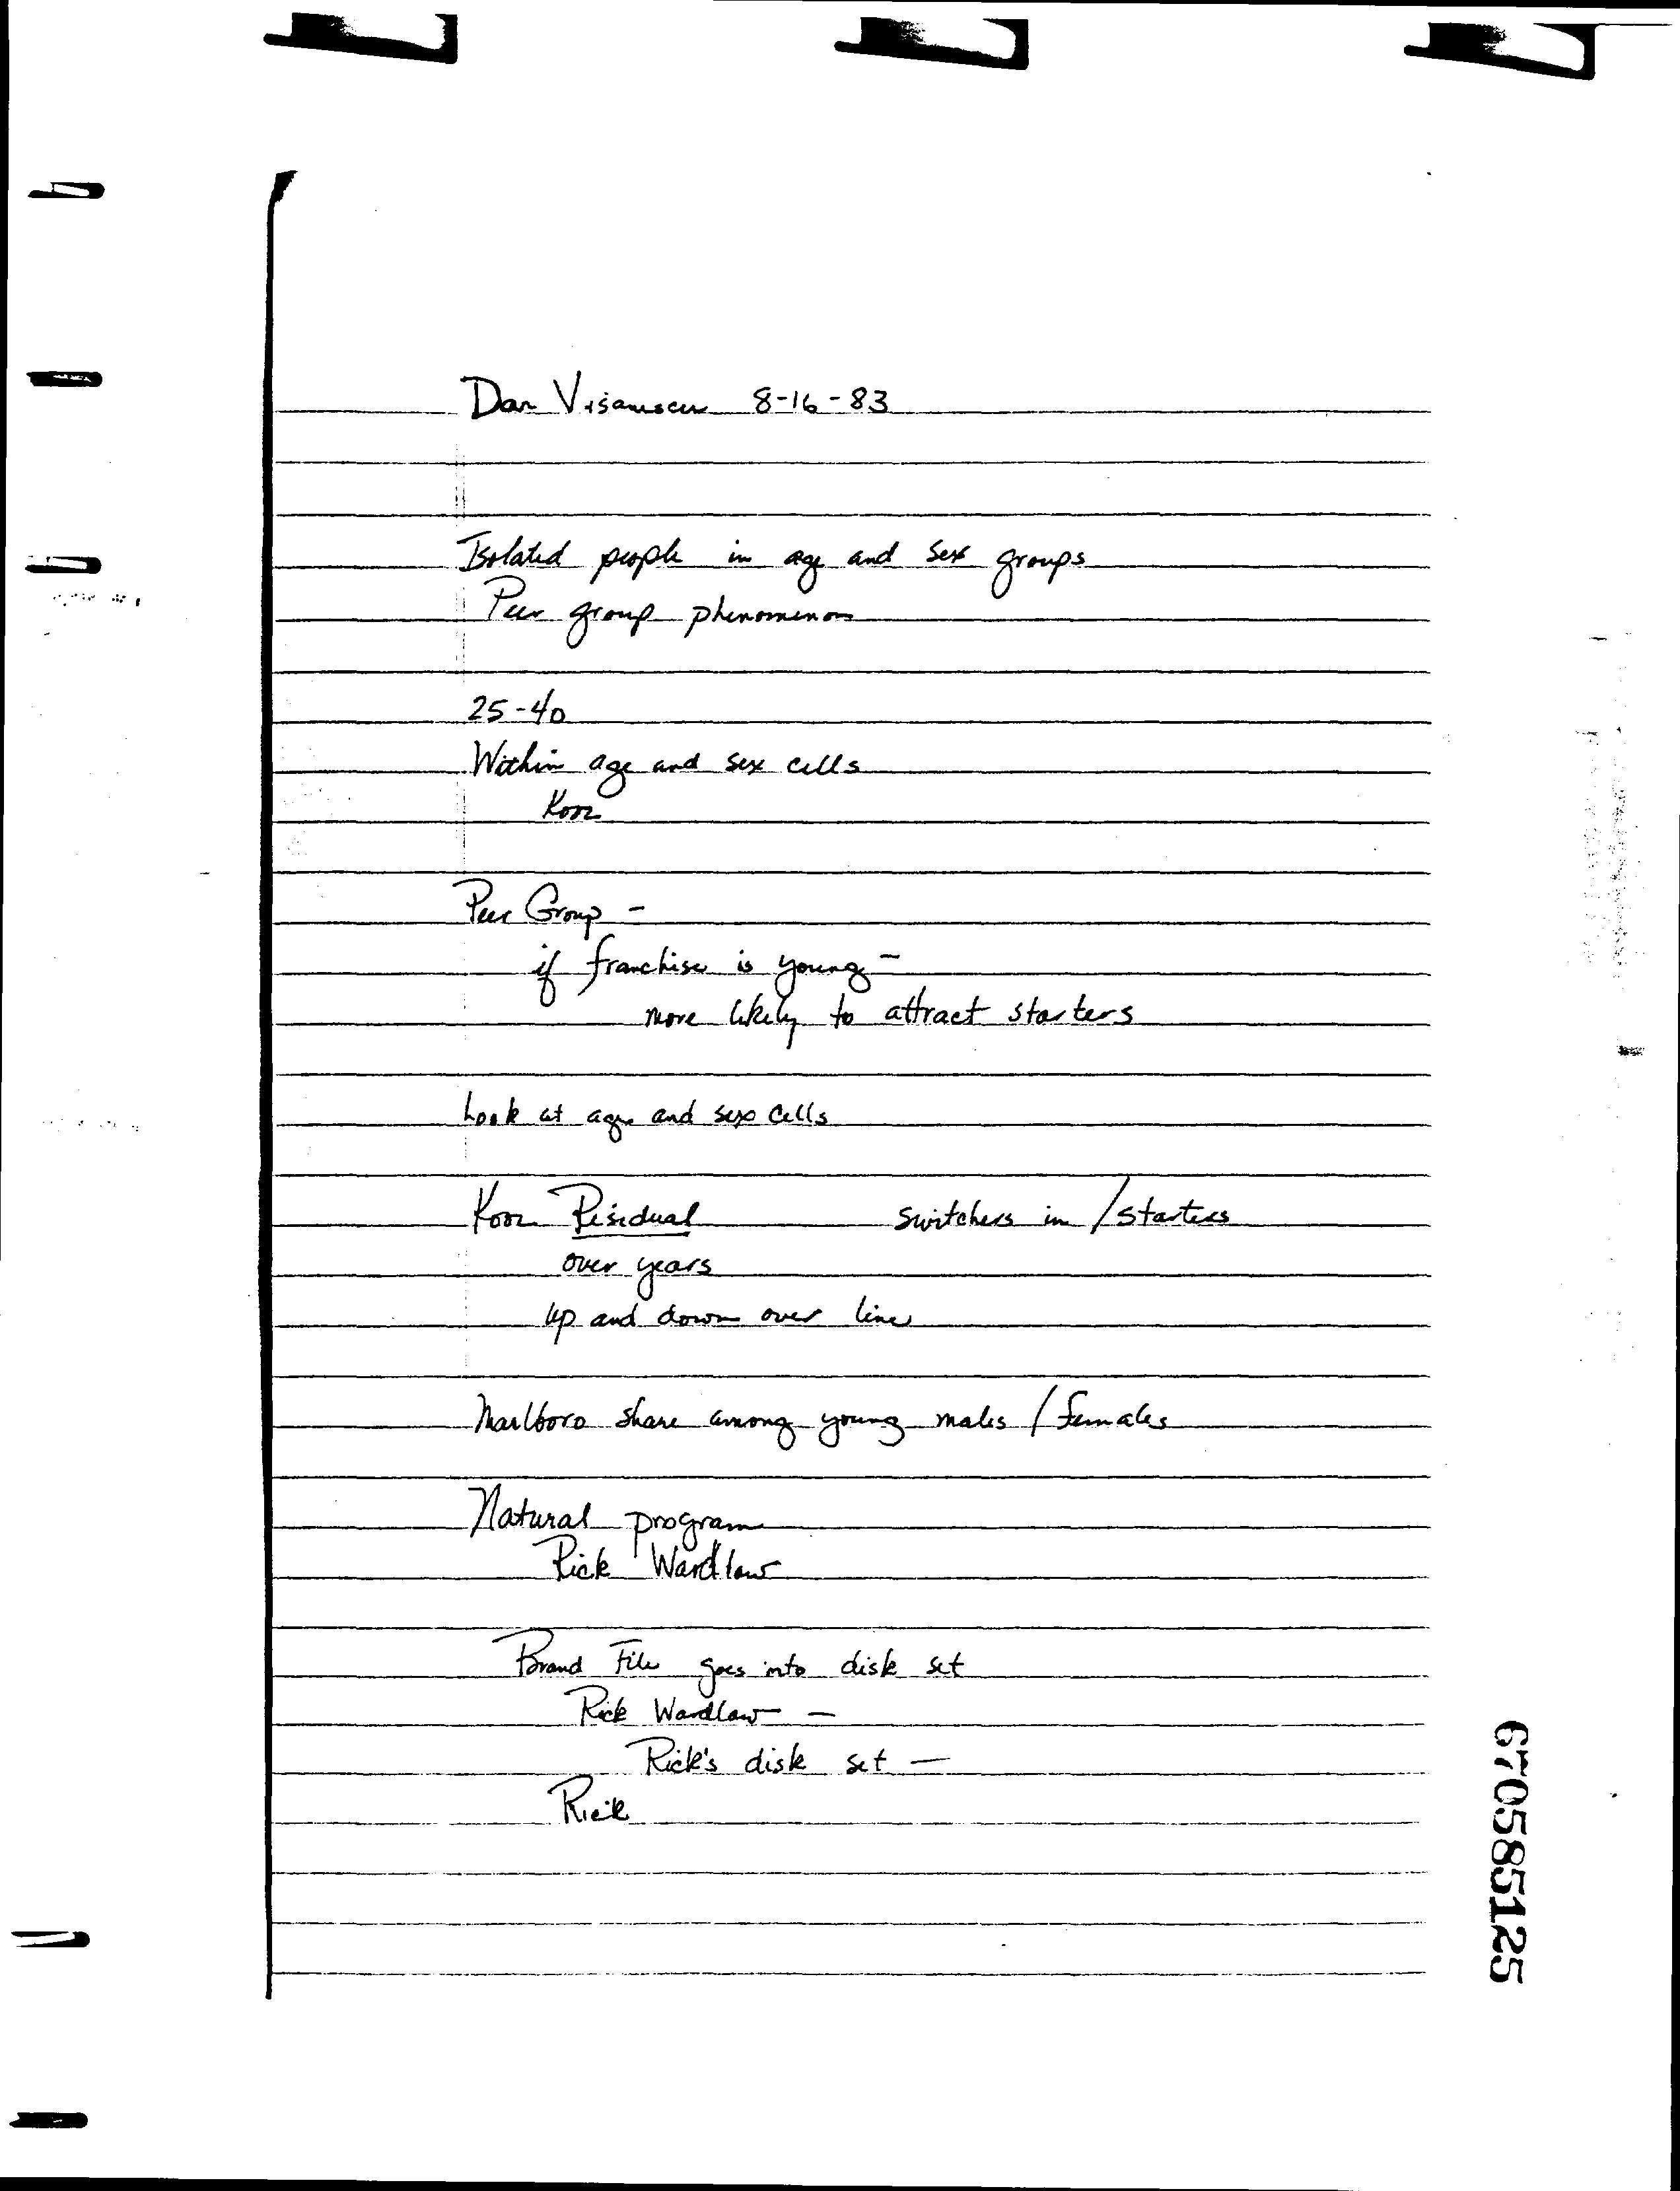 Dan 8-16-83
Isolated people in age and sex groups
Peer group phenomenon
25-40
Within age and sex cells
Kool
Peer Group -
if franchise is young -
more likely to attract starters
Look at age and sex cells
Kool Residual switchers in / starters
over years
up and down over line
Marlboro share among young males / females
Natural program
Rick Wardlaw
Brand File goes into disk set
Rick Wardlaw -
Rick's disk set -
Rick
670585125